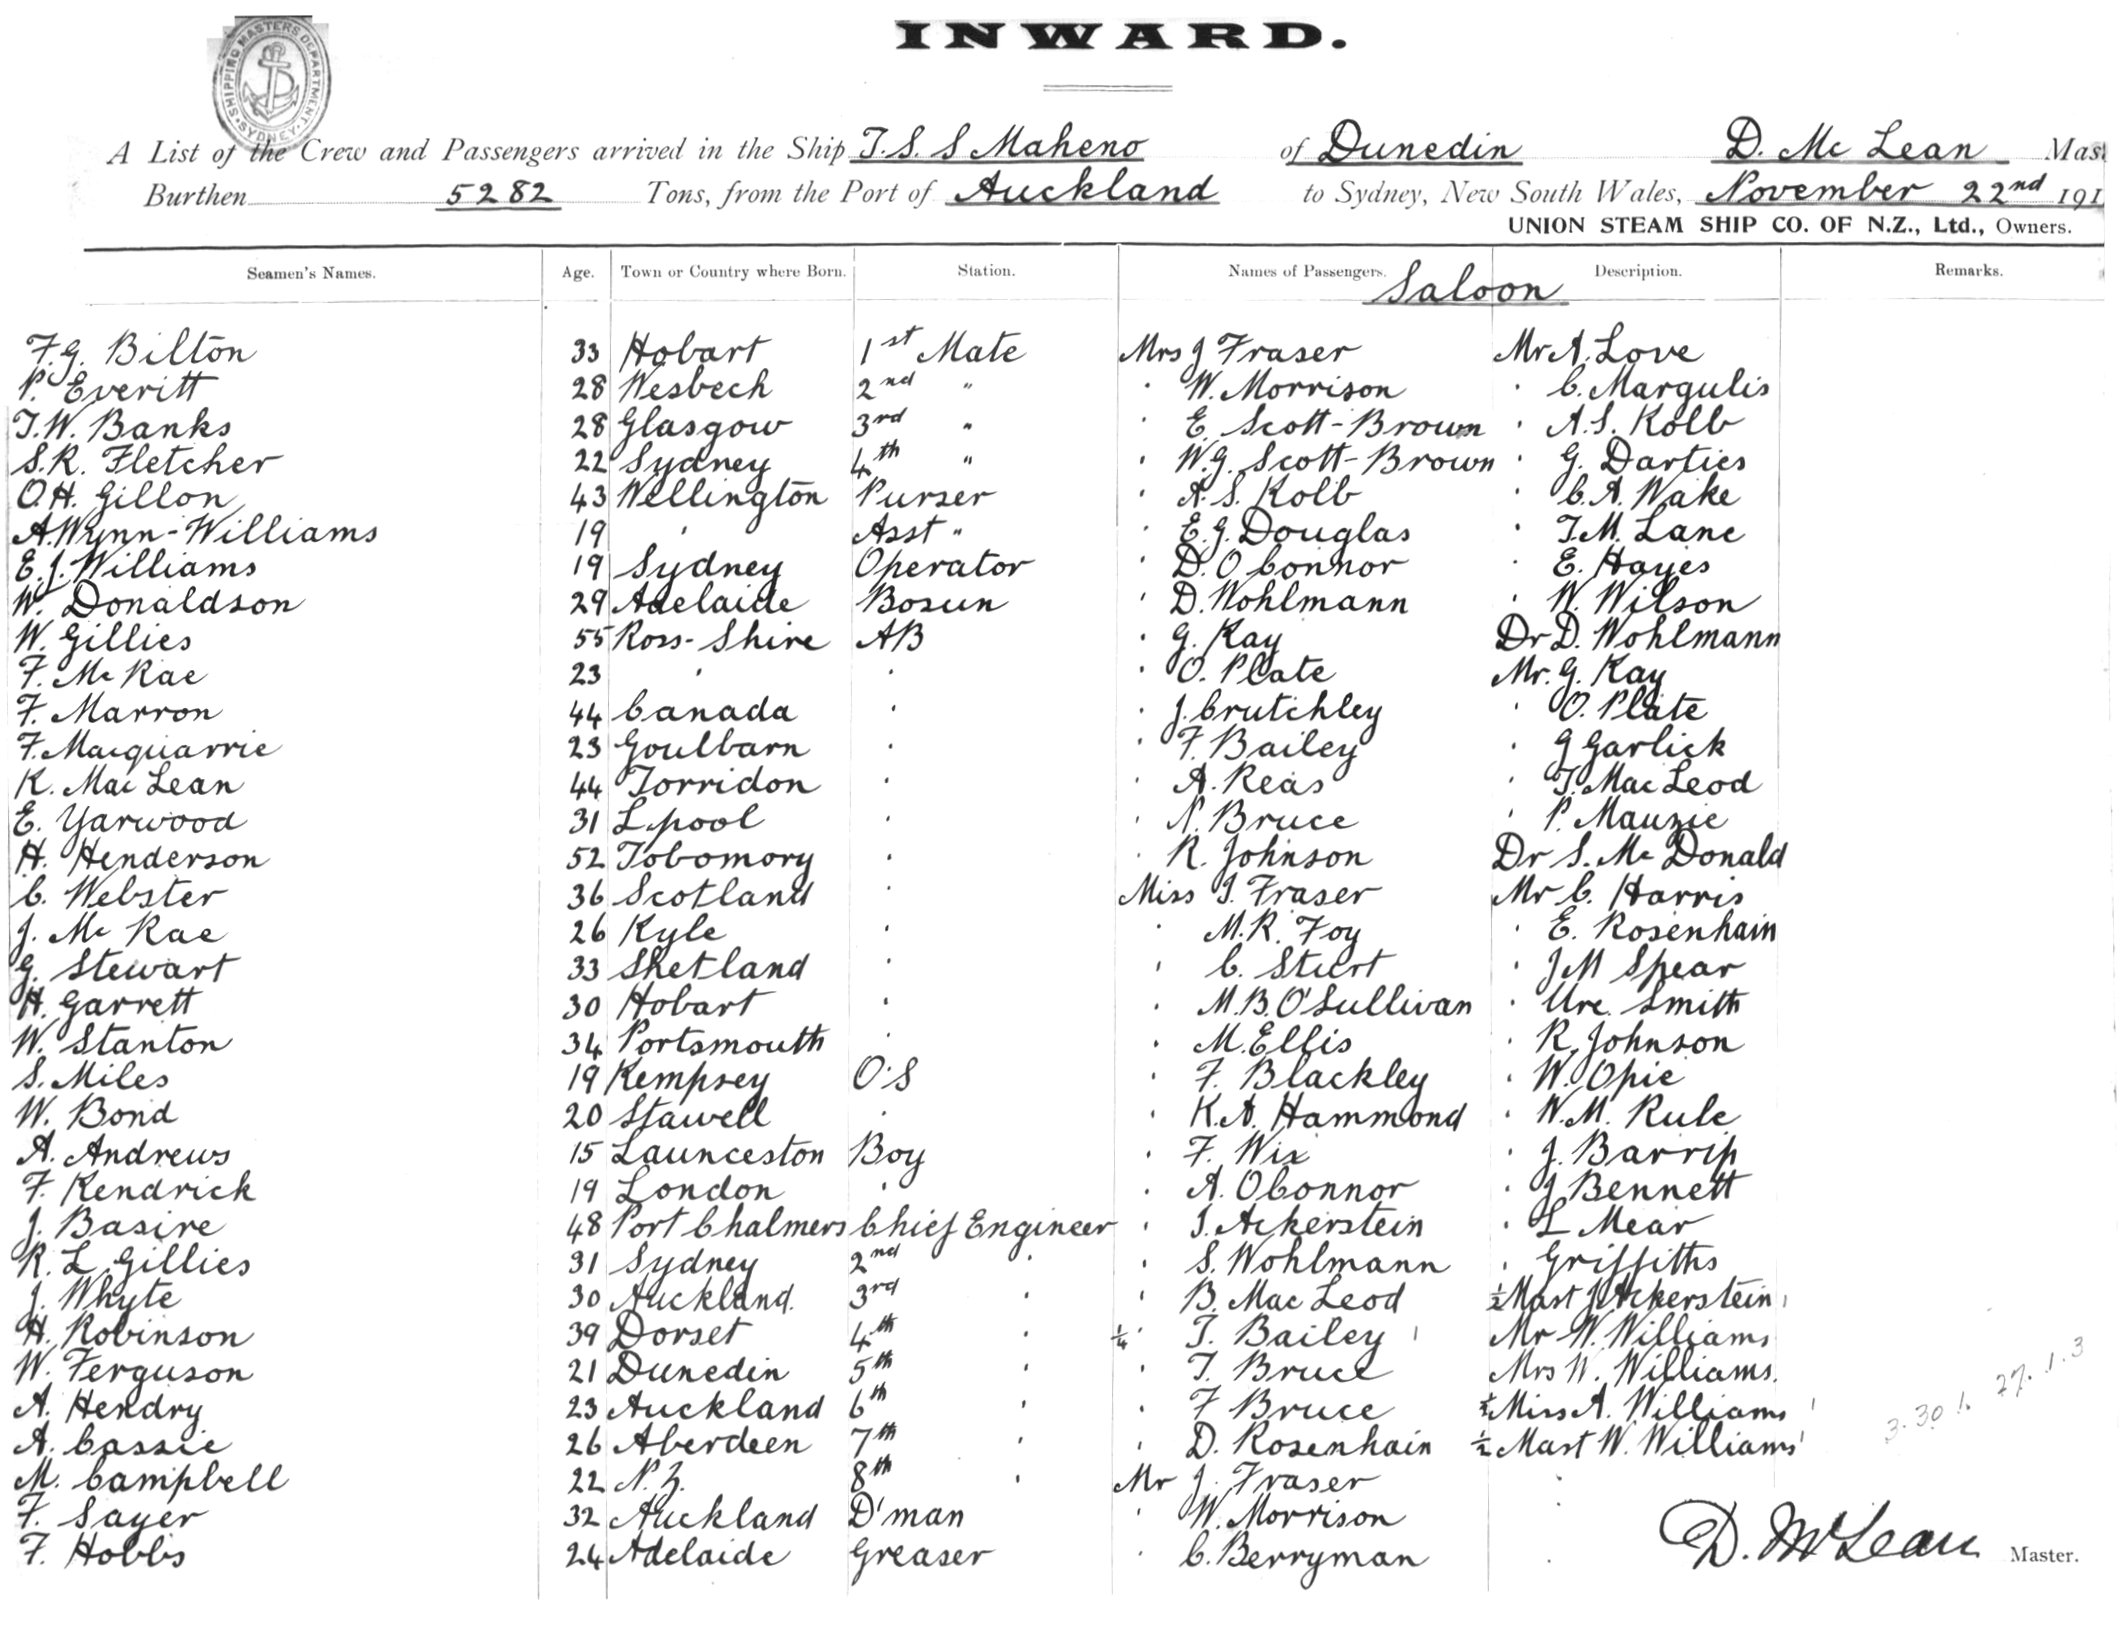 INWARD.
SHIPPING MASTERS DEPARTMENT SYDNEY
A List of the Crew and Passengers arrived in the Ship T.S.S Maheno of Dunedin D. Mc Lean Mas
Burthen 5282 Tons, from the Port of Auckland to Sydney, New South Wales, November 22nd 191
UNION STEAM SHIP CO. OF N.Z., Ltd., Owners.
Seamen's Names. Age. Town or Country where Born. Station. Names of Passengers. Description. Remarks.
Saloon
F.G. Bilton 33 Hobart 1st Mate Mrs J Fraser Mr A. Love
P. Everitt 28 Wesbech 2nd " " W. Morrison " C. Margulis
T.W. Banks 28 Glasgow 3rd " " E. Scott-Brown " A.S. Kolb
S.R. Fletcher 22 Sydney 4th " " W.G. Scott-Brown " G. Darties
O.H. Gillon 43 Wellington Purser " A.S. Kolb " C.A. Wake
A. Wynn-Williams 19 " Asst " " E.G. Douglas " T.M. Lane
E.J. Williams 19 Sydney Operator " D. O Connor " E. Hayes
W. Donaldson 29 Adelaide Bosun " D. Wohlmann " W. Wilson
W. Gillies 55 Ross-Shire AB " G. Kay Dr D. Wohlmann
F. Mc Rae 23 " " " O. Plate Mr. G. Kay
F. Marron 44 Canada " " J. Crutchley " O. Plate
F. Macquarrie 23 Goulbarn " " F. Bailey " G Garlick
K. Mac Lean 44 Torridon " " A. Reas " T. Mac Leod
E. Yarwood 31 L.pool " " N. Bruce " P. Mauzie
H. Henderson 52 Tobomory " " R. Johnson Dr S. Mc Donald
C. Webster 36 Scotland " Miss I. Fraser Mr C. Harris
J. Mc Rae 26 Kyle " " M.R. Foy " E. Rosenhain
G. Stewart 33 Shetland " " C. Sturt " J M Spear
H. Garrett 30 Hobart " " M.B. O'Sullivan " Ure. Smith
W. Stanton 34 Portsmouth " " M. Ellis " R. Johnson
S. Miles 19 Kempsey O.S " F. Blackley " W. Opie
W. Bond 20 Stawell " " K.A. Hammond " W.M. Rule
A. Andrews 15 Launceston Boy " F. Wix " J. Barrip
F. Kendrick 19 London " " A. O Connor " J Bennett
J. Basire 48 Port Chalmers Chief Engineer " I. Ackerstein " L Mear
R. L. Gillies 31 Sydney 2nd " " S. Wohlmann " Griffiths
J. Whyte 30 Auckland. 3rd " " B. Mac Leod ½ Mast J Ackerstein
H. Robinson 39 Dorset 4th " ¼ " T. Bailey Mr W. Williams
W. Ferguson 21 Dunedin 5th " " T. Bruce Mrs W. Williams.
A. Hendry 23 Auckland 6th " " F Bruce Miss A. Williams
A. Cassie 26 Aberdeen 7th " " D. Rosenhain ½ Mast W. Williams
M. Campbell 22 N.Z. 8th " Mr J. Fraser
F. Sayer 32 Auckland D'man " W. Morrison
F. Hobbs 24 Adelaide Greaser " C. Berryman
D. McLean Master.